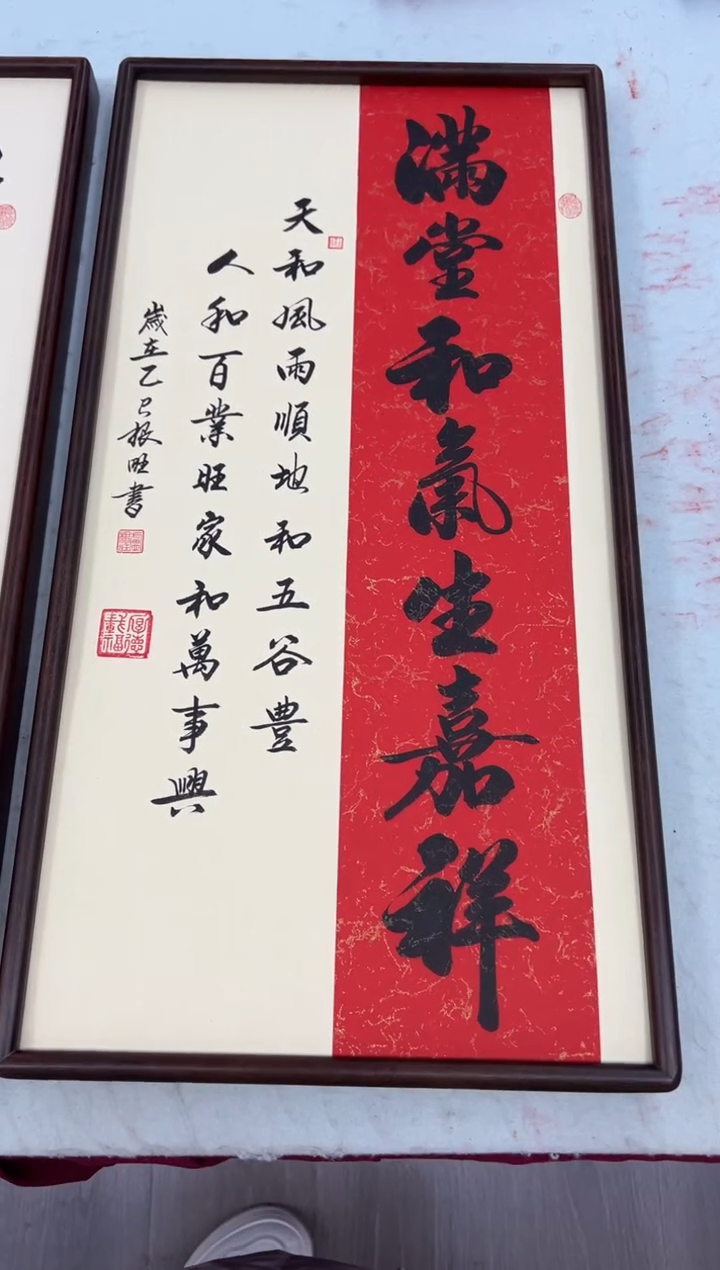 满堂和氣生嘉祥
天和風雨順地和五谷豊
人和百業旺家和萬事興
歲在乙巳振旺書
厚德載福